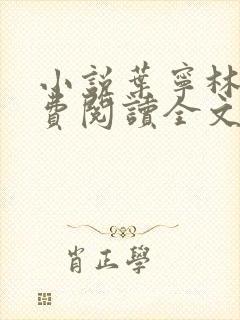 小說葉寧林
費閱讀全文
肖正學